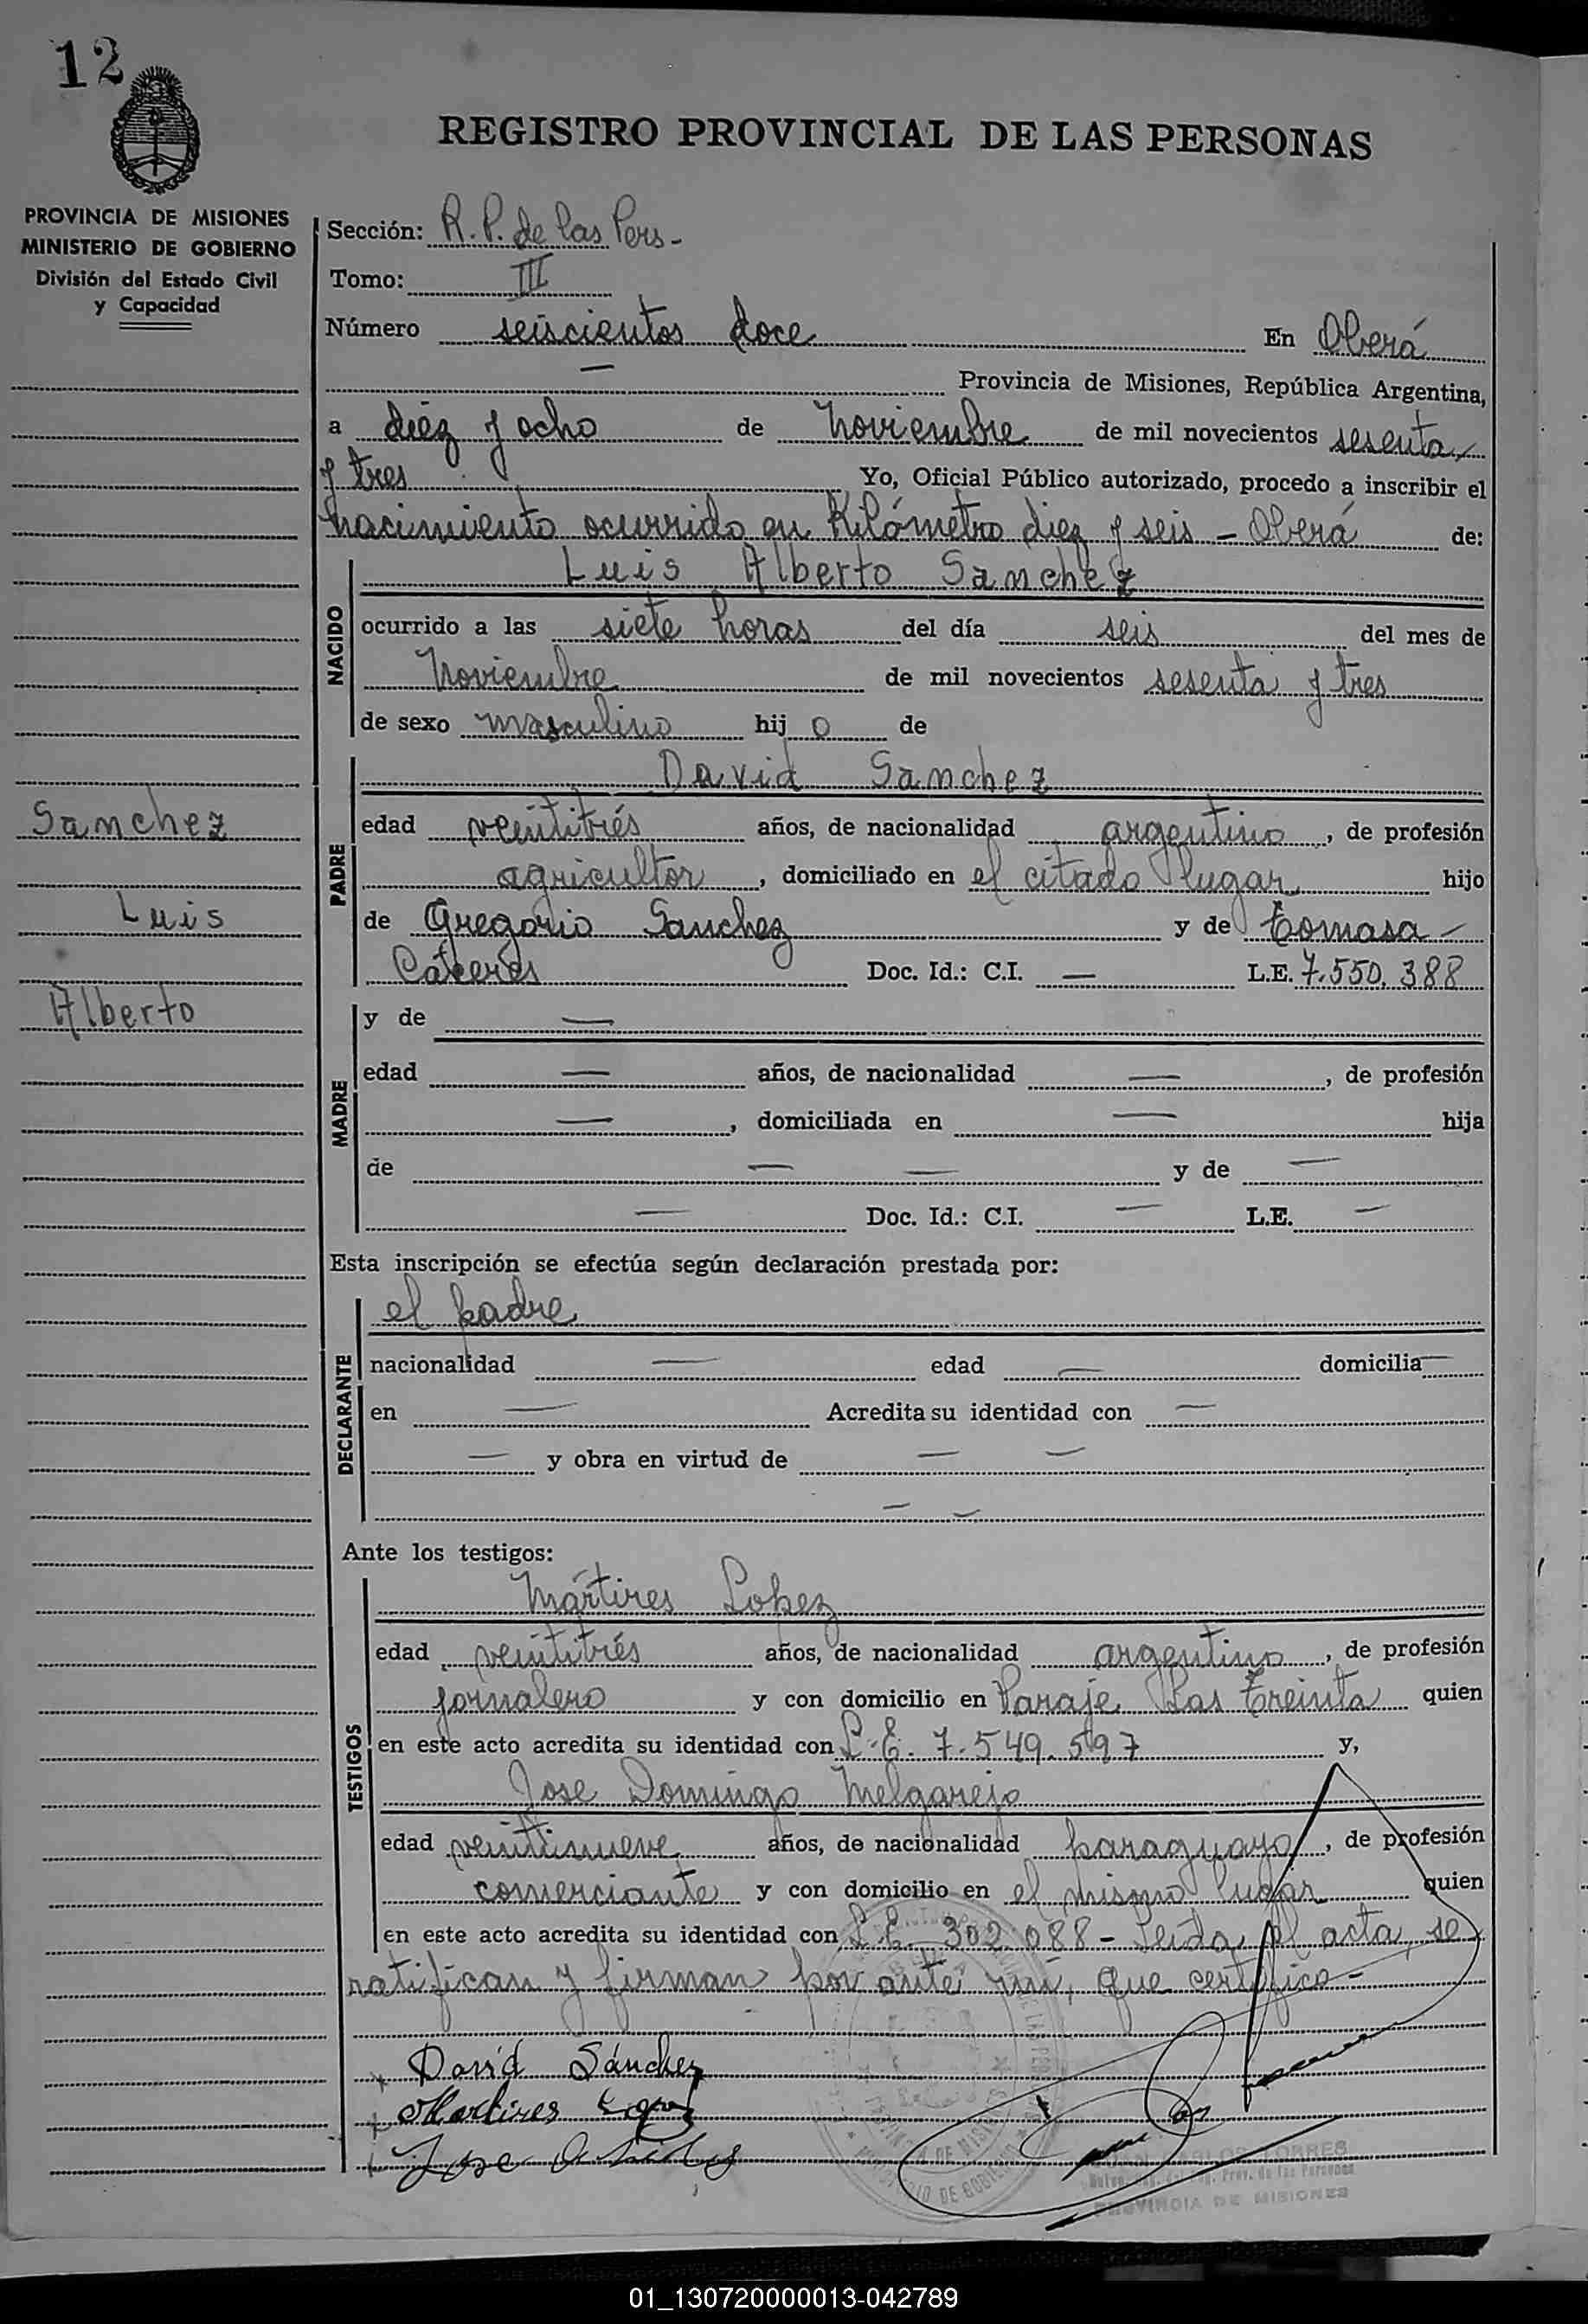 12
REGISTRO PROVINCIAL DE LAS PERSONAS
PROVINCIA DE MISIONES
MINISTERIO DE GOBIERNO
División del Estado Civil
y Capacidad
Sección: R. P. de las Pers-
Tomo: III
Número seiscientos doce En Oberá
— Provincia de Misiones, República Argentina,
a diez y ocho de Noviembre de mil novecientos sesenta
y tres Yo, Oficial Público autorizado, procedo a inscribir el
nacimiento ocurrido en Kilómetro diez y seis - Oberá de:
NACIDO
Luis Alberto Sanchez
ocurrido a las siete horas del día seis del mes de
Noviembre de mil novecientos sesenta y tres
de sexo masculino hij o de
PADRE
David Sanchez
Sanchez
edad veintitrés años, de nacionalidad argentino, de profesión
agricultor, domiciliado en el citado lugar hijo
Luis
de Gregorio Sanchez y de Tomasa -
Cáceres Doc. Id.: C.I. — L.E. 7.550.388
Alberto
MADRE
y de —
edad — años, de nacionalidad —, de profesión
—, domiciliada en — hija
de — — y de —
— Doc. Id.: C.I. — L.E. —
Esta inscripción se efectúa según declaración prestada por:
DECLARANTE
el padre
nacionalidad — edad — domicilia—
en — Acredita su identidad con —
— y obra en virtud de — —
— —
Ante los testigos:
TESTIGOS
Mártires Lopez
edad veintitrés años, de nacionalidad argentino, de profesión
jornalero y con domicilio en Paraje Las Treinta quien
en este acto acredita su identidad con L.E. 7.549.597 y,
Jose Domingo Melgarejo
edad veintinueve años, de nacionalidad paraguayo, de profesión
comerciante y con domicilio en el mismo lugar quien
en este acto acredita su identidad con L.E. 302.088 - Leida el acta, se
ratifican y firman por ante mí, que certifico -
David Sánchez
Martires Lopez
Jose
TORRES
Prov. de las Personas
PROVINCIA DE MISIONES
01_130720000013-042789